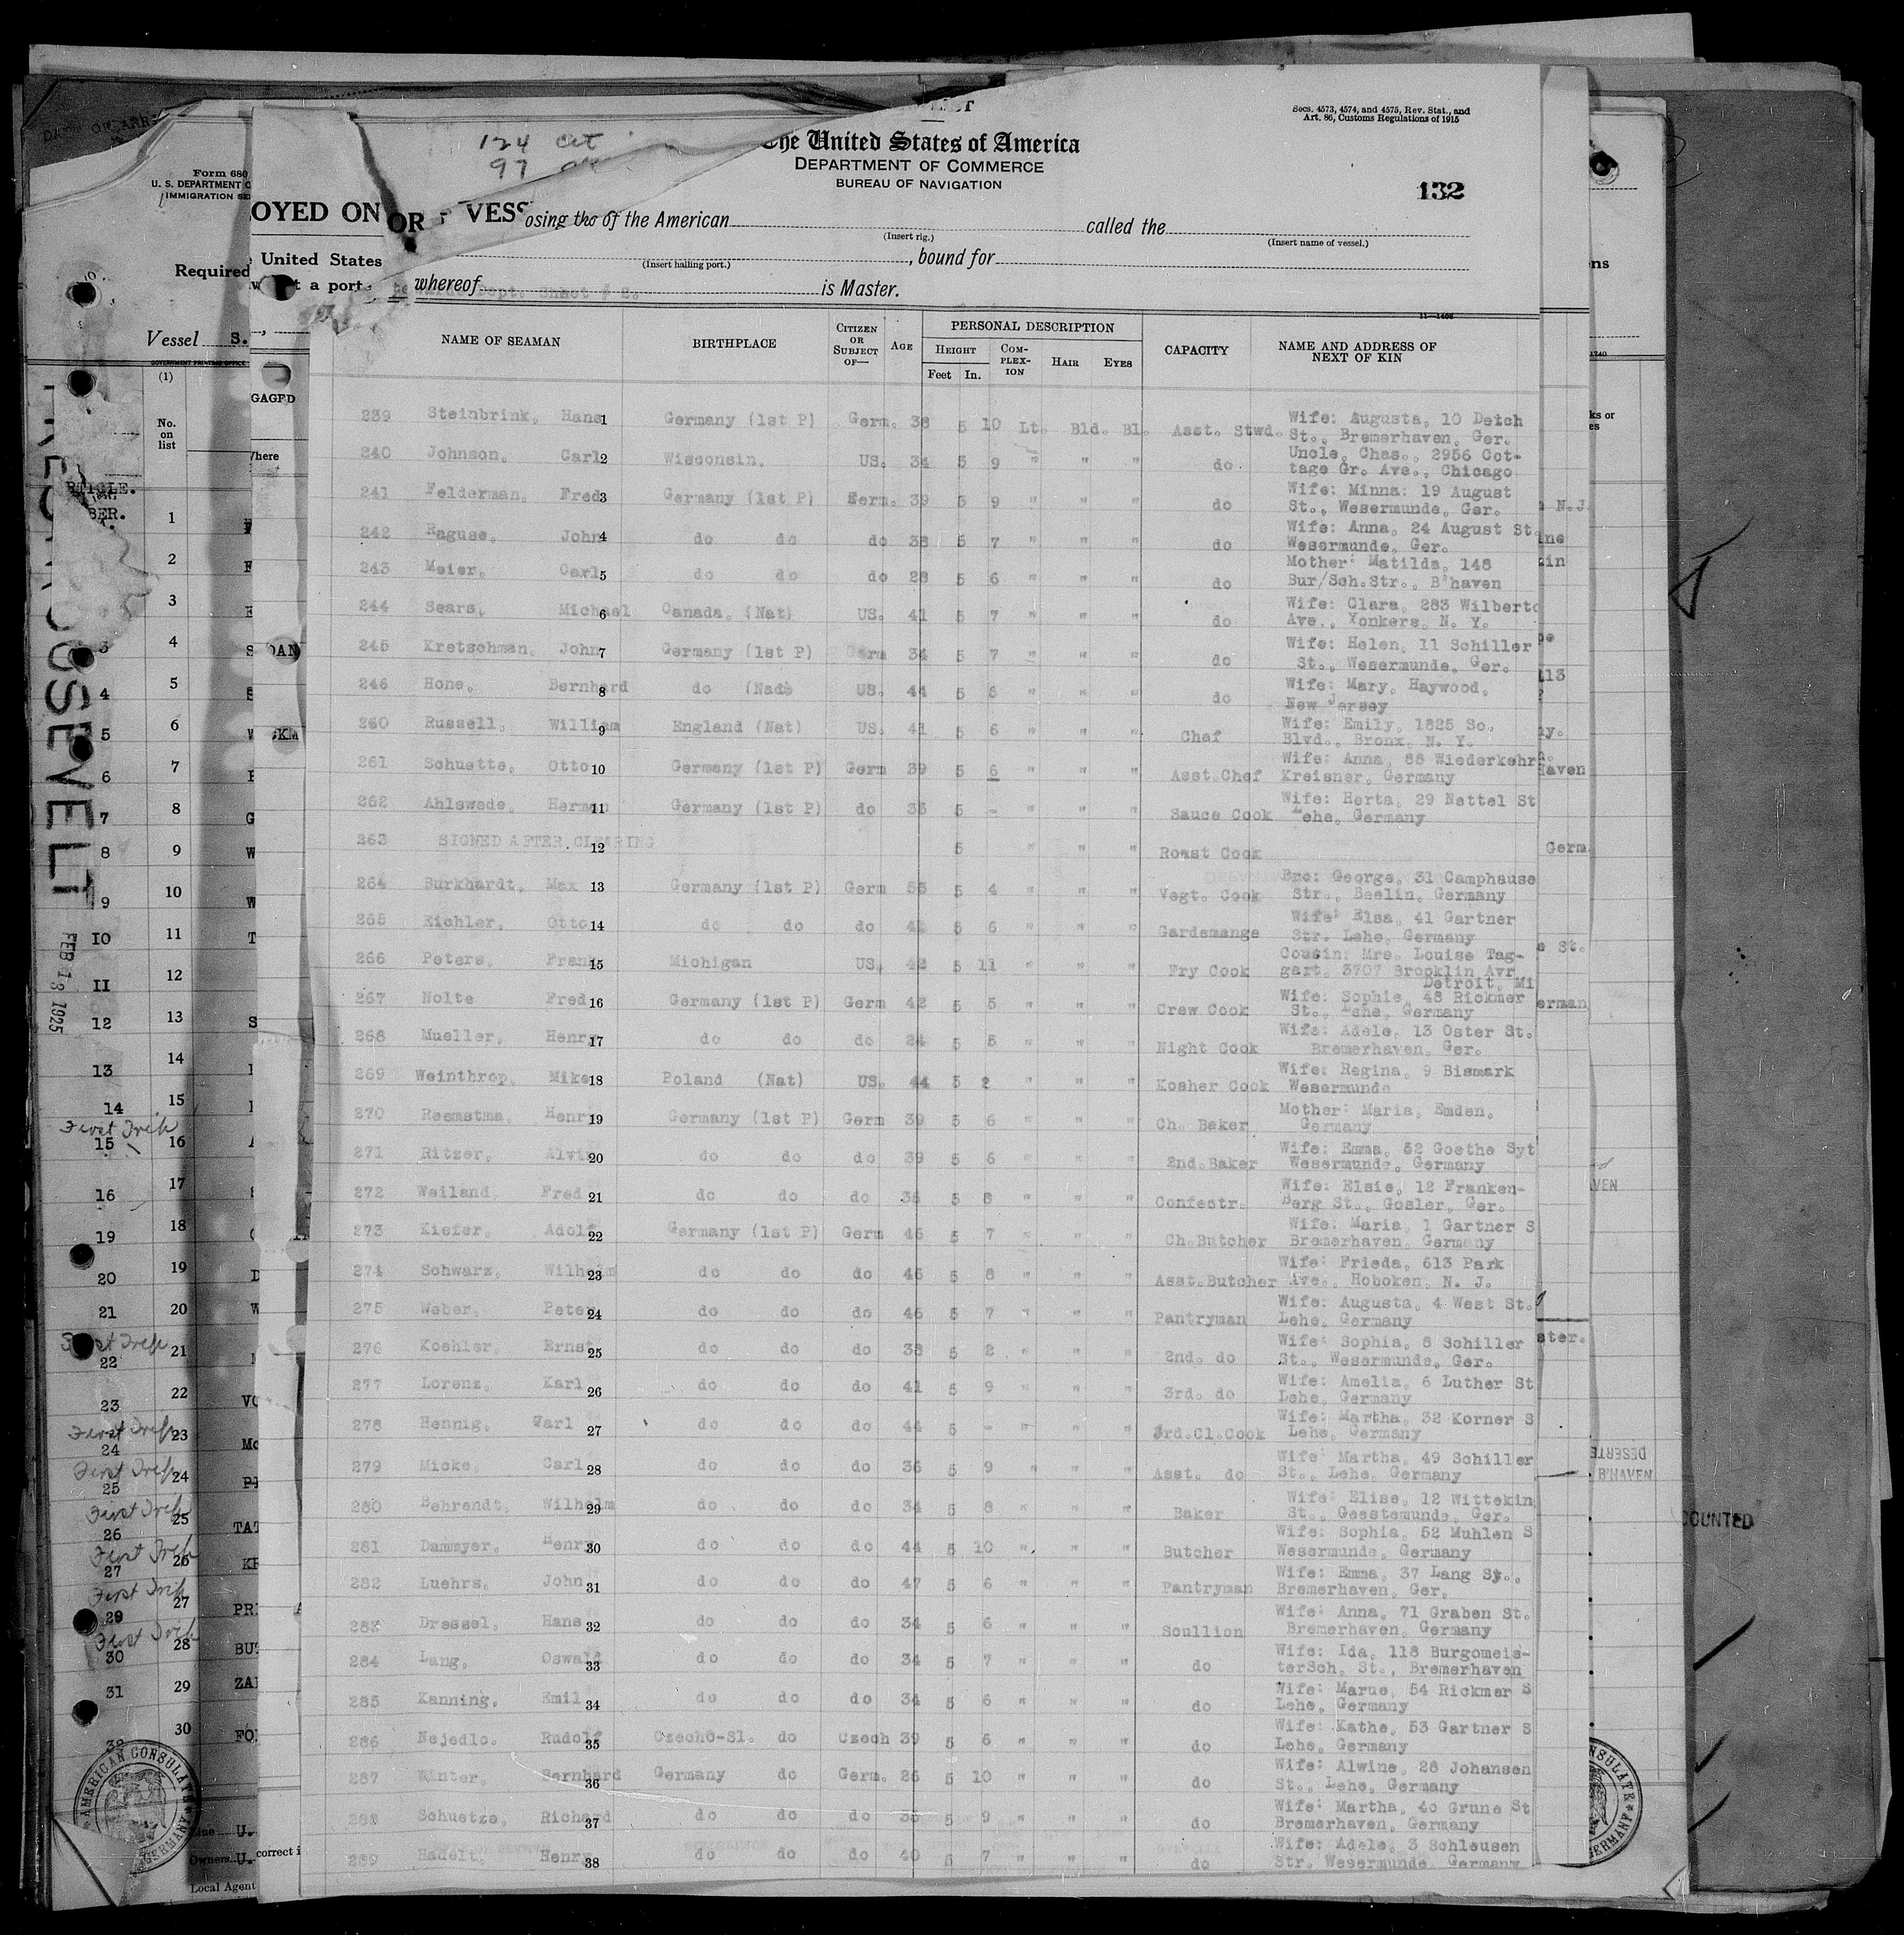 Secs. 4573, 4574, and 4575, Rev. Stat., and
Art. 86, Customs Regulations of 1915
124
97
The United States of America
DEPARTMENT OF COMMERCE
BUREAU OF NAVIGATION
132
Form 680
U. S. DEPARTMENT O
IMMIGRATION SE
OYED ON OR VESS
osing the of the American called the
(Insert rig.) (Insert name of vessel.)
Required United States
(Insert hailing port.) , bound for
t a port whereof is Master.
Dept. Sheet # 2.
Vessel S.
11—1406
NAME OF SEAMAN BIRTHPLACE CITIZEN OR SUBJECT OF— AGE PERSONAL DESCRIPTION CAPACITY NAME AND ADDRESS OF NEXT OF KIN
HEIGHT COM-PLEX-ION HAIR EYES
Feet In.
239 Steinbrink, Hans 1 Germany (1st P) Germ. 38 5 10 Lt. Bld. Bl. Asst. Stwd. Wife: Augusta, 10 Deich
St., Bremerhaven, Ger.
240 Johnson, Carl 2 Wisconsin. US. 34 5 9 " " " do Uncle, Chas., 2956 Cot-
tage Gr. Ave., Chicago
241 Felderman, Fred 3 Germany (1st P) Germ. 39 5 9 " " " do Wife: Minna: 19 August
St., Wesermunde, Ger.
242 Raguse, John 4 do do do 38 5 7 " " " do Wife: Anna, 24 August St.
Wesermunde, Ger.
243 Meier, Carl 5 do do do 28 5 6 " " " do Mother: Matilda, 148
Bur/Sch.Str., B'haven
244 Sears, Michael 6 Canada, (Nat) US. 41 5 7 " " " do Wife: Clara, 283 Wilberto
Ave., Yonkers, N. Y.
245 Kretschman, John 7 Germany (1st P) Germ 34 5 7 " " " do Wife: Helen, 11 Schiller
St., Wesermunde, Ger.
246 Hone, Bernhard 8 do US. 44 5 6 " " " do Wife: Mary, Haywood,
New Jersey
260 Russell, William 9 England (Nat) US. 41 5 6 " " " Chef Wife: Emily, 1825 So.
Blvd., Bronx, N. Y.
261 Schuette, Otto 10 Germany (1st P) Germ 39 5 6 " " " Asst.Chef Wife: Anna, 88 Wiederkehr
Kreisner, Germany
262 Ahlswede, Herman 11 Germany (1st P) do 35 5 - " " " Sauce Cook Wife: Herta, 29 Nettel St
Lehe, Germany
263 SIGNED AFTER CLEARING 12 5 " " Roast Cook
264 Burkhardt, Max 13 Germany (1st P) Germ 55 5 4 " " " Vegt. Cook Bro: George, 31 Camphause
Str., Beelin, Germany
265 Eichler, Otto 14 do do do 5 6 " " " Gardemange Wife: Elsa, 41 Gartner
Str. Lehe, Germany
266 Peters, Frank 15 Michigan US. 42 5 11 " " " Fry Cook Cousin: Mrs. Louise Tag-
gart, 3707 Brooklin Avr
Detroit, Mi
267 Nolte Fred 16 Germany (1st P) Germ 42 5 5 " " " Crew Cook Wife: Sophie, 48 Rickmer
St., Lehe, Germany
268 Mueller, Henry 17 do do do 24 5 5 " " " Night Cook Wife: Adele, 13 Oster St.
Bremerhaven, Ger.
269 Weinthrop, Mike 18 Poland (Nat) US. 44 5 2 " " " Kosher Cook Wife: Regina, 9 Bismark
Wesermunde
270 Reemstma, Henry 19 Germany (1st P) Germ 39 5 6 " " " Ch. Baker Mother: Maria, Emden,
Germany
271 Ritzer, Alvin 20 do do do 39 5 6 " " " 2nd.Baker Wife: Emma, 52 Goethe Syt
Wesermunde, Germany
272 Weiland, Fred 21 do do do 36 5 8 " " " Confectr. Wife: Elsie, 12 Franken-
Berg St., Gosler, Ger.
273 Kiefer, Adolf 22 Germany (1st P) Germ 45 5 7 " " " Ch.Butcher Wife: Maria, 1 Gartner S
Bremerhaven, Germany
274 Schwarz, Wilhelm 23 do do do 46 5 8 " " " Asst.Butcher Wife: Frieda, 613 Park
Ave., Hoboken, N. J.
275 Weber, Peter 24 do do do 46 5 7 " " " Pantryman Wife: Augusta, 4 West St.
Lehe, Germany
276 Koehler, Ernst 25 do do do 38 5 2 " " " 2nd. do Wife: Sophia, 8 Schiller
St., Wesermunde, Ger.
277 Lorenz, Karl 26 do do do 41 5 9 " " " 3rd. do Wife: Amelia, 6 Luther St
Lehe, Germany
278 Hennig, Karl 27 do do do 44 5 - " " " 3rd.Cl.Cook Wife: Martha, 32 Korner S
Lehe, Germany
279 Micke, Carl 28 do do do 36 5 9 " " " Asst. do Wife: Martha, 49 Schiller
St., Lehe, Germany
280 Behrendt, Wilhelm 29 do do do 34 5 8 " " " Baker Wife: Elise, 12 Wittekin
St., Geestemunde, Ger.
281 Dammyer, Henry 30 do do do 44 5 10 " " " Butcher Wife: Sophia, 52 Muhlen S
Wesermunde, Germany
282 Luehrs, John 31 do do do 47 5 6 " " " Pantryman Wife: Emma, 37 Lang St.,
Bremerhaven, Ger.
283 Dressel, Hans 32 do do do 34 5 6 " " " Scullion Wife: Anna, 71 Graben St.
Bremerhaven, Germany
284 Lang, Oswald 33 do do do 34 5 7 " " " do Wife: Ida, 118 Burgomeis-
terSch. St., Bremerhaven
285 Kanning, Emil 34 do do do 34 5 6 " " " do Wife: Marue, 54 Rickmer S
Lehe, Germany
286 Nejedlo. Rudolf 35 Czecho-Sl. do Czech 39 5 6 " " " do Wife: Kathe, 53 Gartner S
Lehe, Germany
287 Winter, Bernhard 36 Germany do Germ. 26 5 10 " " " do Wife: Alwine, 28 Johansen
St., Lehe, Germany
288 Schuetze, Richard 37 do do do 5 9 " " " do Wife: Martha, 40 Grune St
Bremerhaven, Germany
289 Hadelt, Henry 38 do do do 40 5 7 " " " do Wife: Adele, 3 Schleusen
Str. Wesermunde, Germany
ROOSEVELT
FEB 13 1925
(1)
No. on list
First Trip
First Trip
First Trip
First Trip
First Trip
First Trip
First Trip
First Trip
AMERICAN CONSULATE
GERMANY
Owners U.
Local Agent
correct i
DESERTE
B'HAVEN
COUNTED